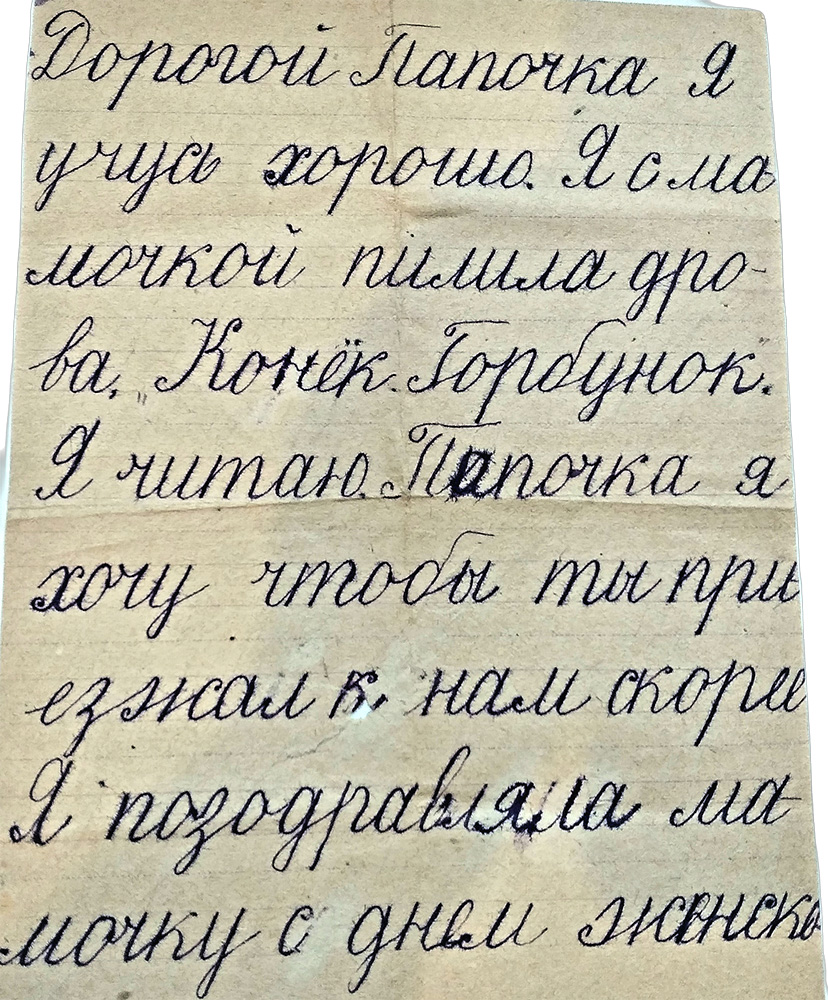 Дорогой Папочка Я
учусь хорошо. Я с ма
мочкой пилила дро-
ва. „Конёк. Горбунок.
Я читаю. Папочка я
хочу чтобы ты при
езжал к нам скорее
Я позодравляла ма-
мочку с днем женско